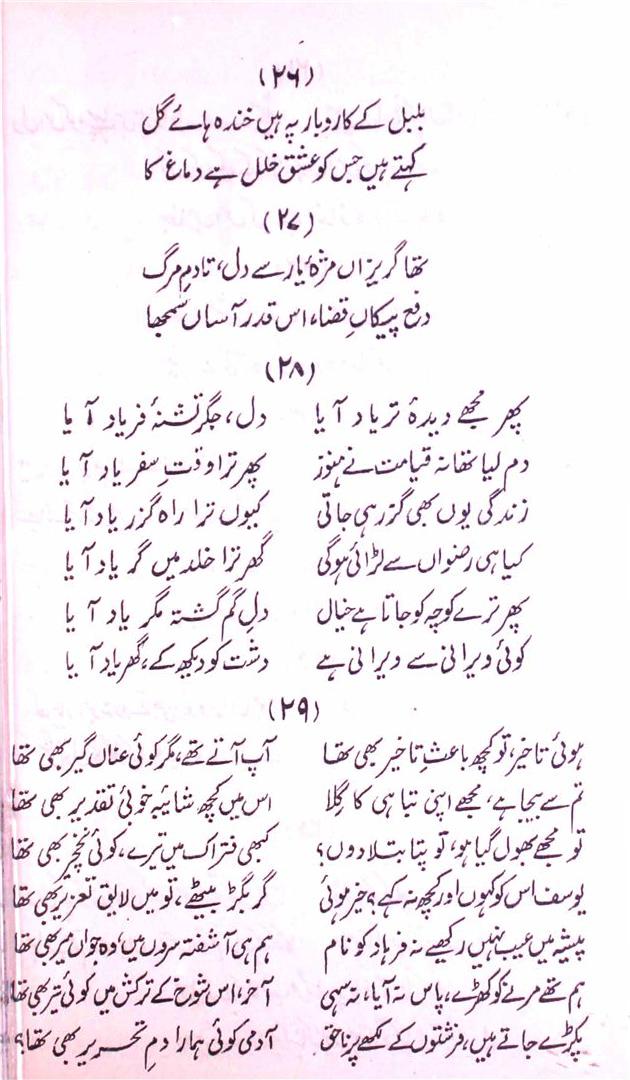 (۲۶)
بلبل کے کاروبار پہ ہیں خندہ ہائے گل
کہتے ہیں جس کو عشق خلل ہے دماغ کا
(۲۷)
تھا گریزاں مژۂ یار سے دل، تا دمِ مرگ
دفعِ پیکانِ قضا، اس قدر آساں سمجھا
(۲۸)
پھر مجھے دیدۂ تر یاد آیا دل، جگر تشنۂ فریاد آیا
دم لیا تھا نہ قیامت نے ہنوز پھر ترا وقتِ سفر یاد آیا
زندگی یوں بھی گزر ہی جاتی کیوں ترا راہ گزر یاد آیا
کیا ہی رضواں سے لڑائی ہوگی گھر ترا خلد میں گر یاد آیا
پھر ترے کوچہ کو جاتا ہے خیال دلِ گم گشتہ مگر یاد آیا
کوئی ویرانی سے ویرانی ہے دشت کو دیکھ کے، گھر یاد آیا
(۲۹)
ہوئی تاخیر، تو کچھ باعثِ تاخیر بھی تھا آپ آتے تھے، مگر کوئی عناں گیر بھی تھا
تم سے بیجا ہے، مجھے اپنی تباہی کا گِلا اس میں کچھ شائبۂ خوبئ تقدیر بھی تھا
تو مجھے بھول گیا ہو، تو پتا بتلا دوں؟ کبھی فتراک میں تیرے، کوئی نخچیر بھی تھا
یوسف اس کو کہوں اور کچھ نہ کہے؟ خیر ہوئی گر بگڑ بیٹھے، تو میں لایق تعزیر بھی تھا
پیشہ میں عیب نہیں رکھیے نہ فرہاد کو نام ہم ہی آشفتہ سروں میں، وہ جواں میر بھی تھا
ہم تھے مرنے کو کھڑے، پاس نہ آیا، نہ سہی آخر، اس شوخ کے ترکش میں کوئی تیر بھی تھا
پکڑے جاتے ہیں، فرشتوں کے لکھے پر ناحق آدمی کوئی ہمارا دمِ تحریر بھی تھا؟